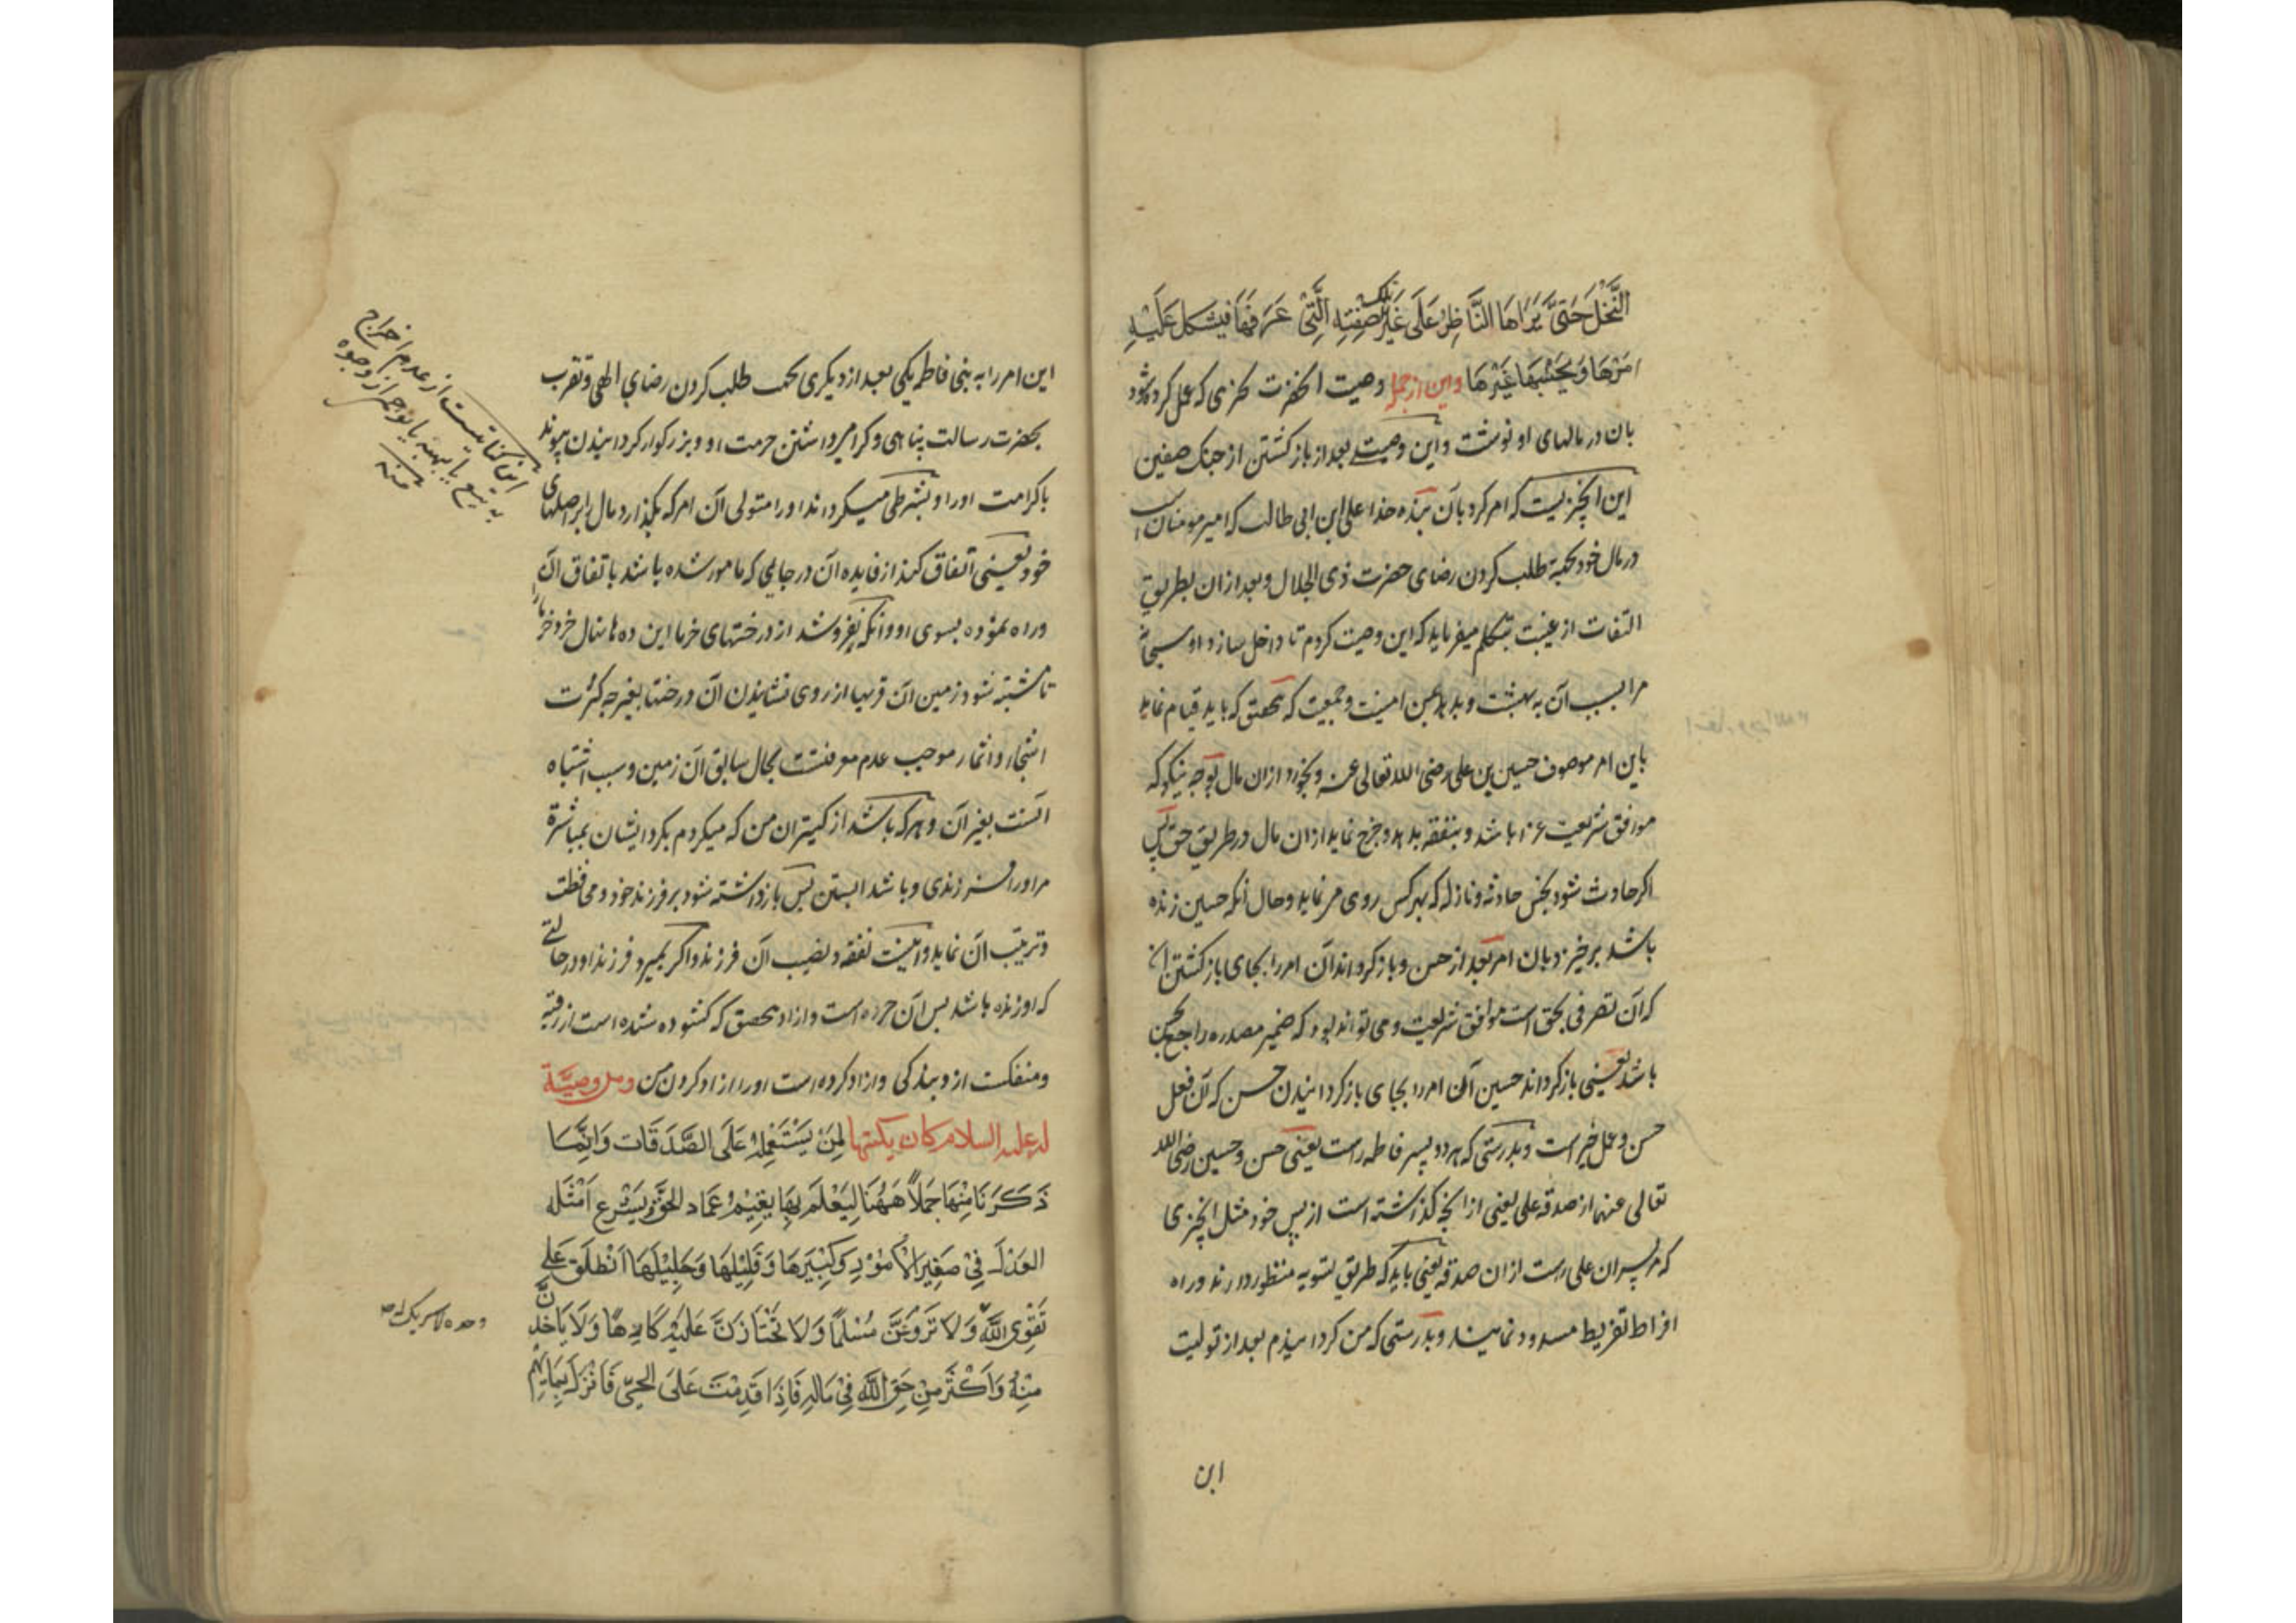 النَّخْلَ حَتَّى يَرَاهَا النَّاظِرُ عَلَى غَيْرِ تلك صِفَتِهِ الَّتِي عَرَفَهَا فَيَشْكُلَ عَلَيْهِ
امْرُهَا وَيَحْسَبُهَا غَيْرَهَا واین از جمله وصیت آنحضرت بحزی که عمل کرده شود
بان در مالهای او نوشت و این وصیت بعد از باز کشتن از جنک صفین
این آنچیزیست که امر کرد بآن بنده خدا علی ابن ابی طالب که امیر مومنان است
در مال خود بجهة طلب کردن رضای حضرت ذی الجلال و بعد از ان بطریق
التفات از غیبت بتکلم میفرماید که این وصیت کردم تا داخل سازد او سبحانه
مرا بسبب آن به بهشت و بدهد بمن امنیت و جمعیت که بتحقیق که باید قیام نماید
باین امر موصوف حسین بن علی رضی الله تعالی عنه و بخورد ازان مال بوجه نیکو که
موافق شریعت غرا باشد و بنفقه بدهد و خرج نماید ازان مال در طریق حق پس
اکر حادث شود بحسن حادثه و نازله که بهر کس روی می نماید و حال آنکه حسین زنده
باشد برخیزد بان امر بعد از حسن و باز کرداند آن امر را بجای باز کشتن آن
که آن تصرفی بحق است موافق شریعت و می تواند بود که ضمیر مصدره راجع بحسن
باشد یعنی باز کرداند حسین آن امر را بجای باز کردانیدن حسن که آن فعل
حسن و عمل خیر است و بدرستی که هر دو پسر فاطمه راست یعنی حسن و حسین رضی الله
تعالی عنهما از صدقه علی یعنی از آنچه کذاشته است از پس خود مثل آنچیزی
که مر پسران علی راست ازان صدقه یعنی باید که طریق تسویه منظور دارند و راه
افراط تفریط مسدود نمایند و بدرستی که من کردانیدم بعد از تولیت
این
این امر را به بنی فاطمه یکی بعد از دیکری بجهت طلب کردن رضای الهی و تقرب
بحضرت رسالت پناهی و کرامی داشتن حرمت او و بزرکوار کردانیدن پیوند
با کرامت او را و بشرطی میکرداند او را متولی آن امر که بکذارد مال را بر اصلهای
خود یعنی اتفاق کند از فایده آن در جایی که مامور شده باشد باتفاق آن
و راه نموده بسوی او و آنکه نفروشد از درختهای خرما این ده ها نهال خرد خرما
تا مشتبه شود زمین آن قریها از روی نشانیدن آن درختها بغیر چه کثرت
اشجار و اثمار موجب عدم معرفتست بحال سابق آن زمین و سبب اشتباه
آنست بغیر آن و هر که باشد از کنیزان من که میکردم بکرد ایشان بمباشرة
مر او را فرزندی و یا باشد آبستن پس باز داشته شود بر فرزند خود و محافظت
و تربیت آن نماید و آنست نفقه و نصیب آن فرزند و اکر بمیرد فرزند او در حالتی
که او زنده باشد پس آن حره است و آزاد بتحقیق که کشوده شده است از رقبه
و منفکست ازو بندکی و آزاد کرده است او را آزاد کردن من ومن وصیّة
له علیه السلام کان یکتبها لِمَنْ يَسْتَعْمِلُهُ عَلَى الصَّدَقَاتِ وَاِنَّمَا
ذَكَرْنَا مِنْهَا جُمَلًا هَهُنَا لِيَعْلَمَ بِهَا يُقِيمُ عِمَادَ الْحَقِّ وَيَشْرَعُ اَمْثِلَةَ
العَدْلِ فِي صَغِيرِ الْأُمُورِ وَكَبِيرِهَا وَقَلِيلِهَا وَجَلِيلِهَا اَنْطَلِقْ عَلَى
تَقْوَى اللَّهِ وَلَا تُرَوِّعَنَّ مُسْلِمًا وَلَا تَجْتَازَنَّ عَلَيْهِ كَارِهًا وَلَا تَأْخُذَنَّ
مِنْهُ وَاَكْثَرَ مِنْ حَقِّ اللَّهِ فِي مَالِهِ فَاِذَا قَدِمْتَ عَلَى الْحَيِّ فَانْزِلْ بِمَائِهِمْ
این کنایتست از عدم اخراج
به بیع یا بهبه یا بوجهی از وجوه
منه
وحده لا شریک له